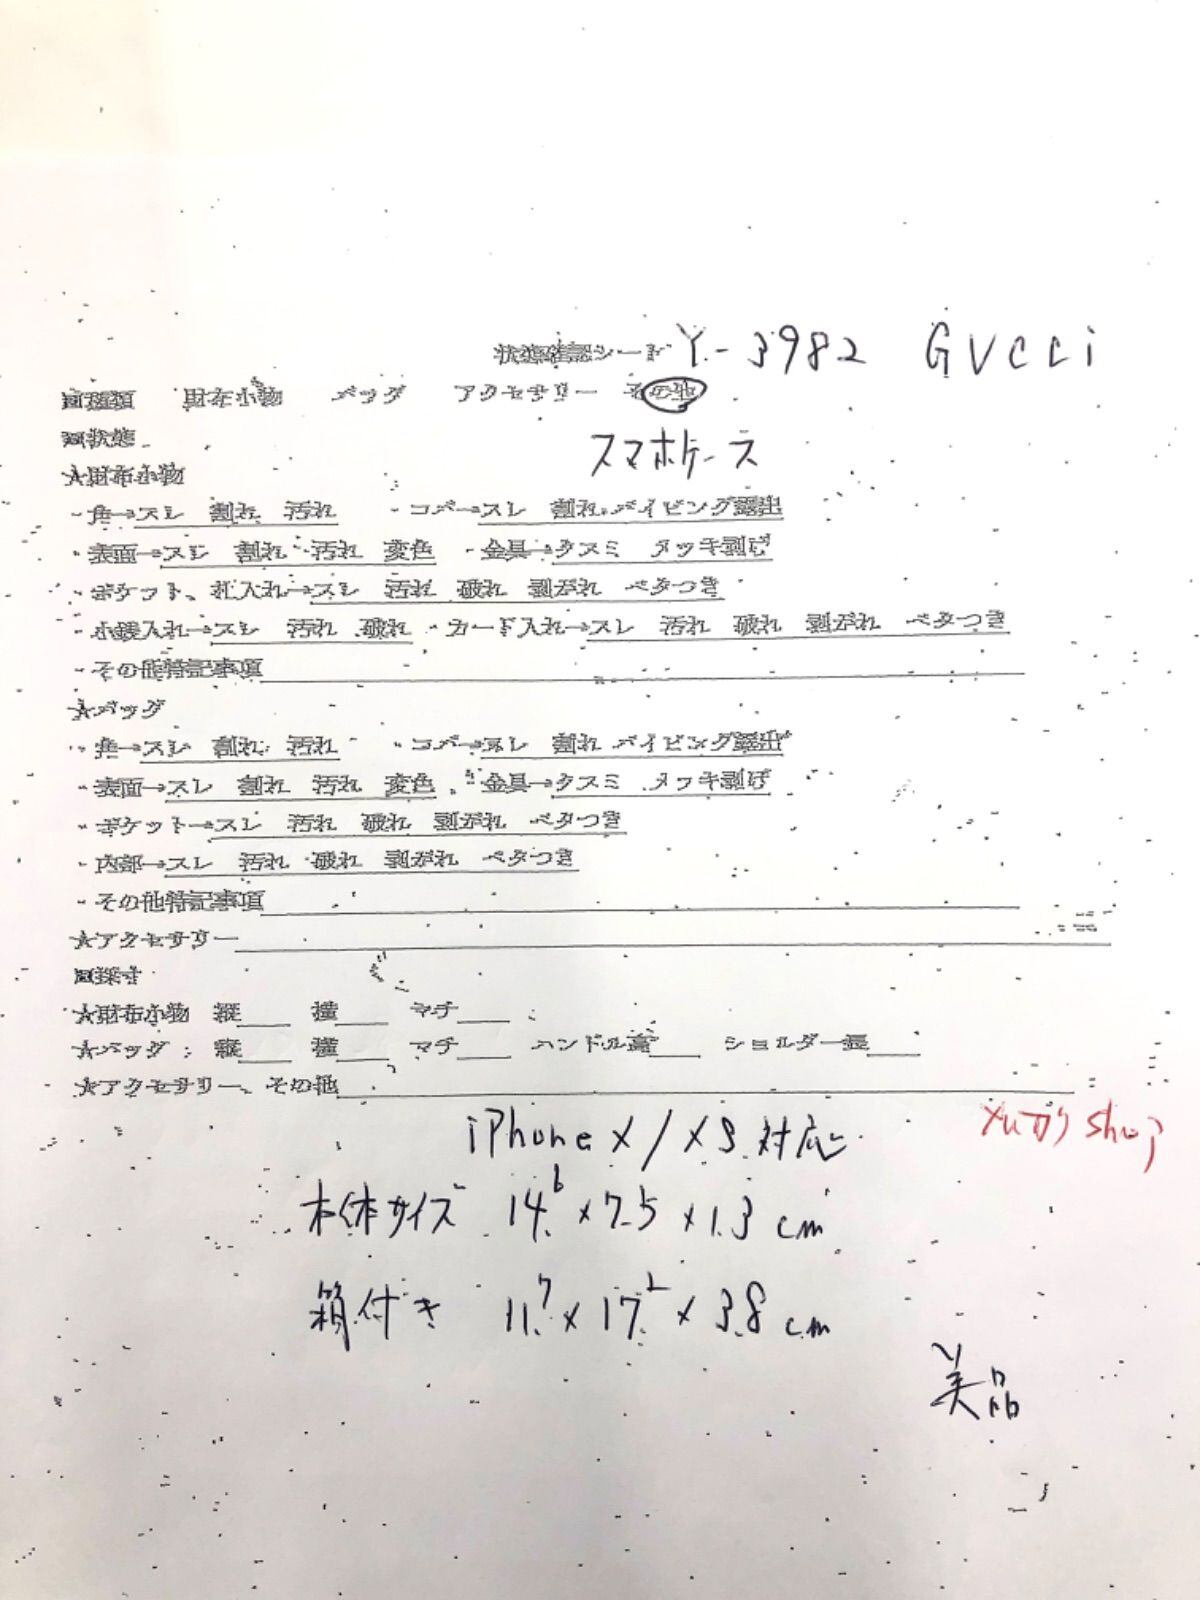 状態確認シート Y-3982 GUCCI
■種類 財布小物 バッグ アクセサリー その他
■状態 スマホケース
★財布小物
・角→スレ 割れ 汚れ ・コバ→スレ 割れ パイピング露出
・表面→スレ 割れ 汚れ 変色 ・金具→クスミ メッキ剥げ
・ポケット、札入れ→スレ 汚れ 破れ 剥がれ ベタつき
・小銭入れ→スレ 汚れ 破れ ・カード入れ→スレ 汚れ 破れ 剥がれ ベタつき
・その他特記事項
★バッグ
・角→スレ 割れ 汚れ ・コバ→スレ 割れ パイピング露出
・表面→スレ 割れ 汚れ 変色 ・金具→クスミ メッキ剥げ
・ポケット→スレ 汚れ 破れ 剥がれ ベタつき
・内部→スレ 汚れ 破れ 剥がれ ベタつき
・その他特記事項
★アクセサリー
■採寸
★財布小物 縦 横 マチ
★バッグ:縦 横 マチ ハンドル高 ショルダー長
★アクセサリー、その他
iPhone X/XS 対応
本体サイズ 14.6×7.5×1.3 cm
箱付き 11.7×17.2×3.8 cm
美品